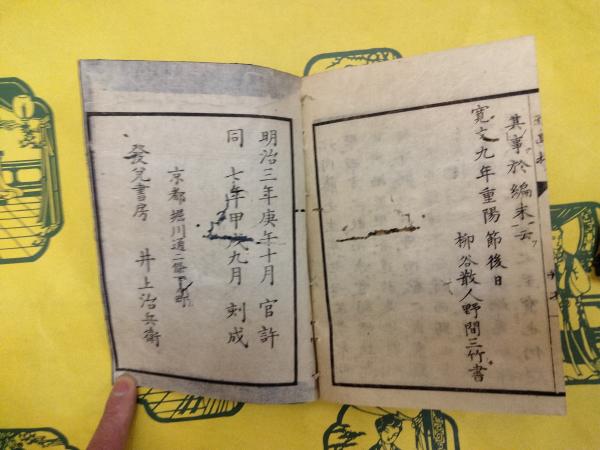 其事於編末云
寛文九年重陽節後日
柳谷散人野間三竹書
明治三年庚午十月官許
同七年甲戌九月刻成
京都堀川通二條下町
發兌書房 井上治兵衛